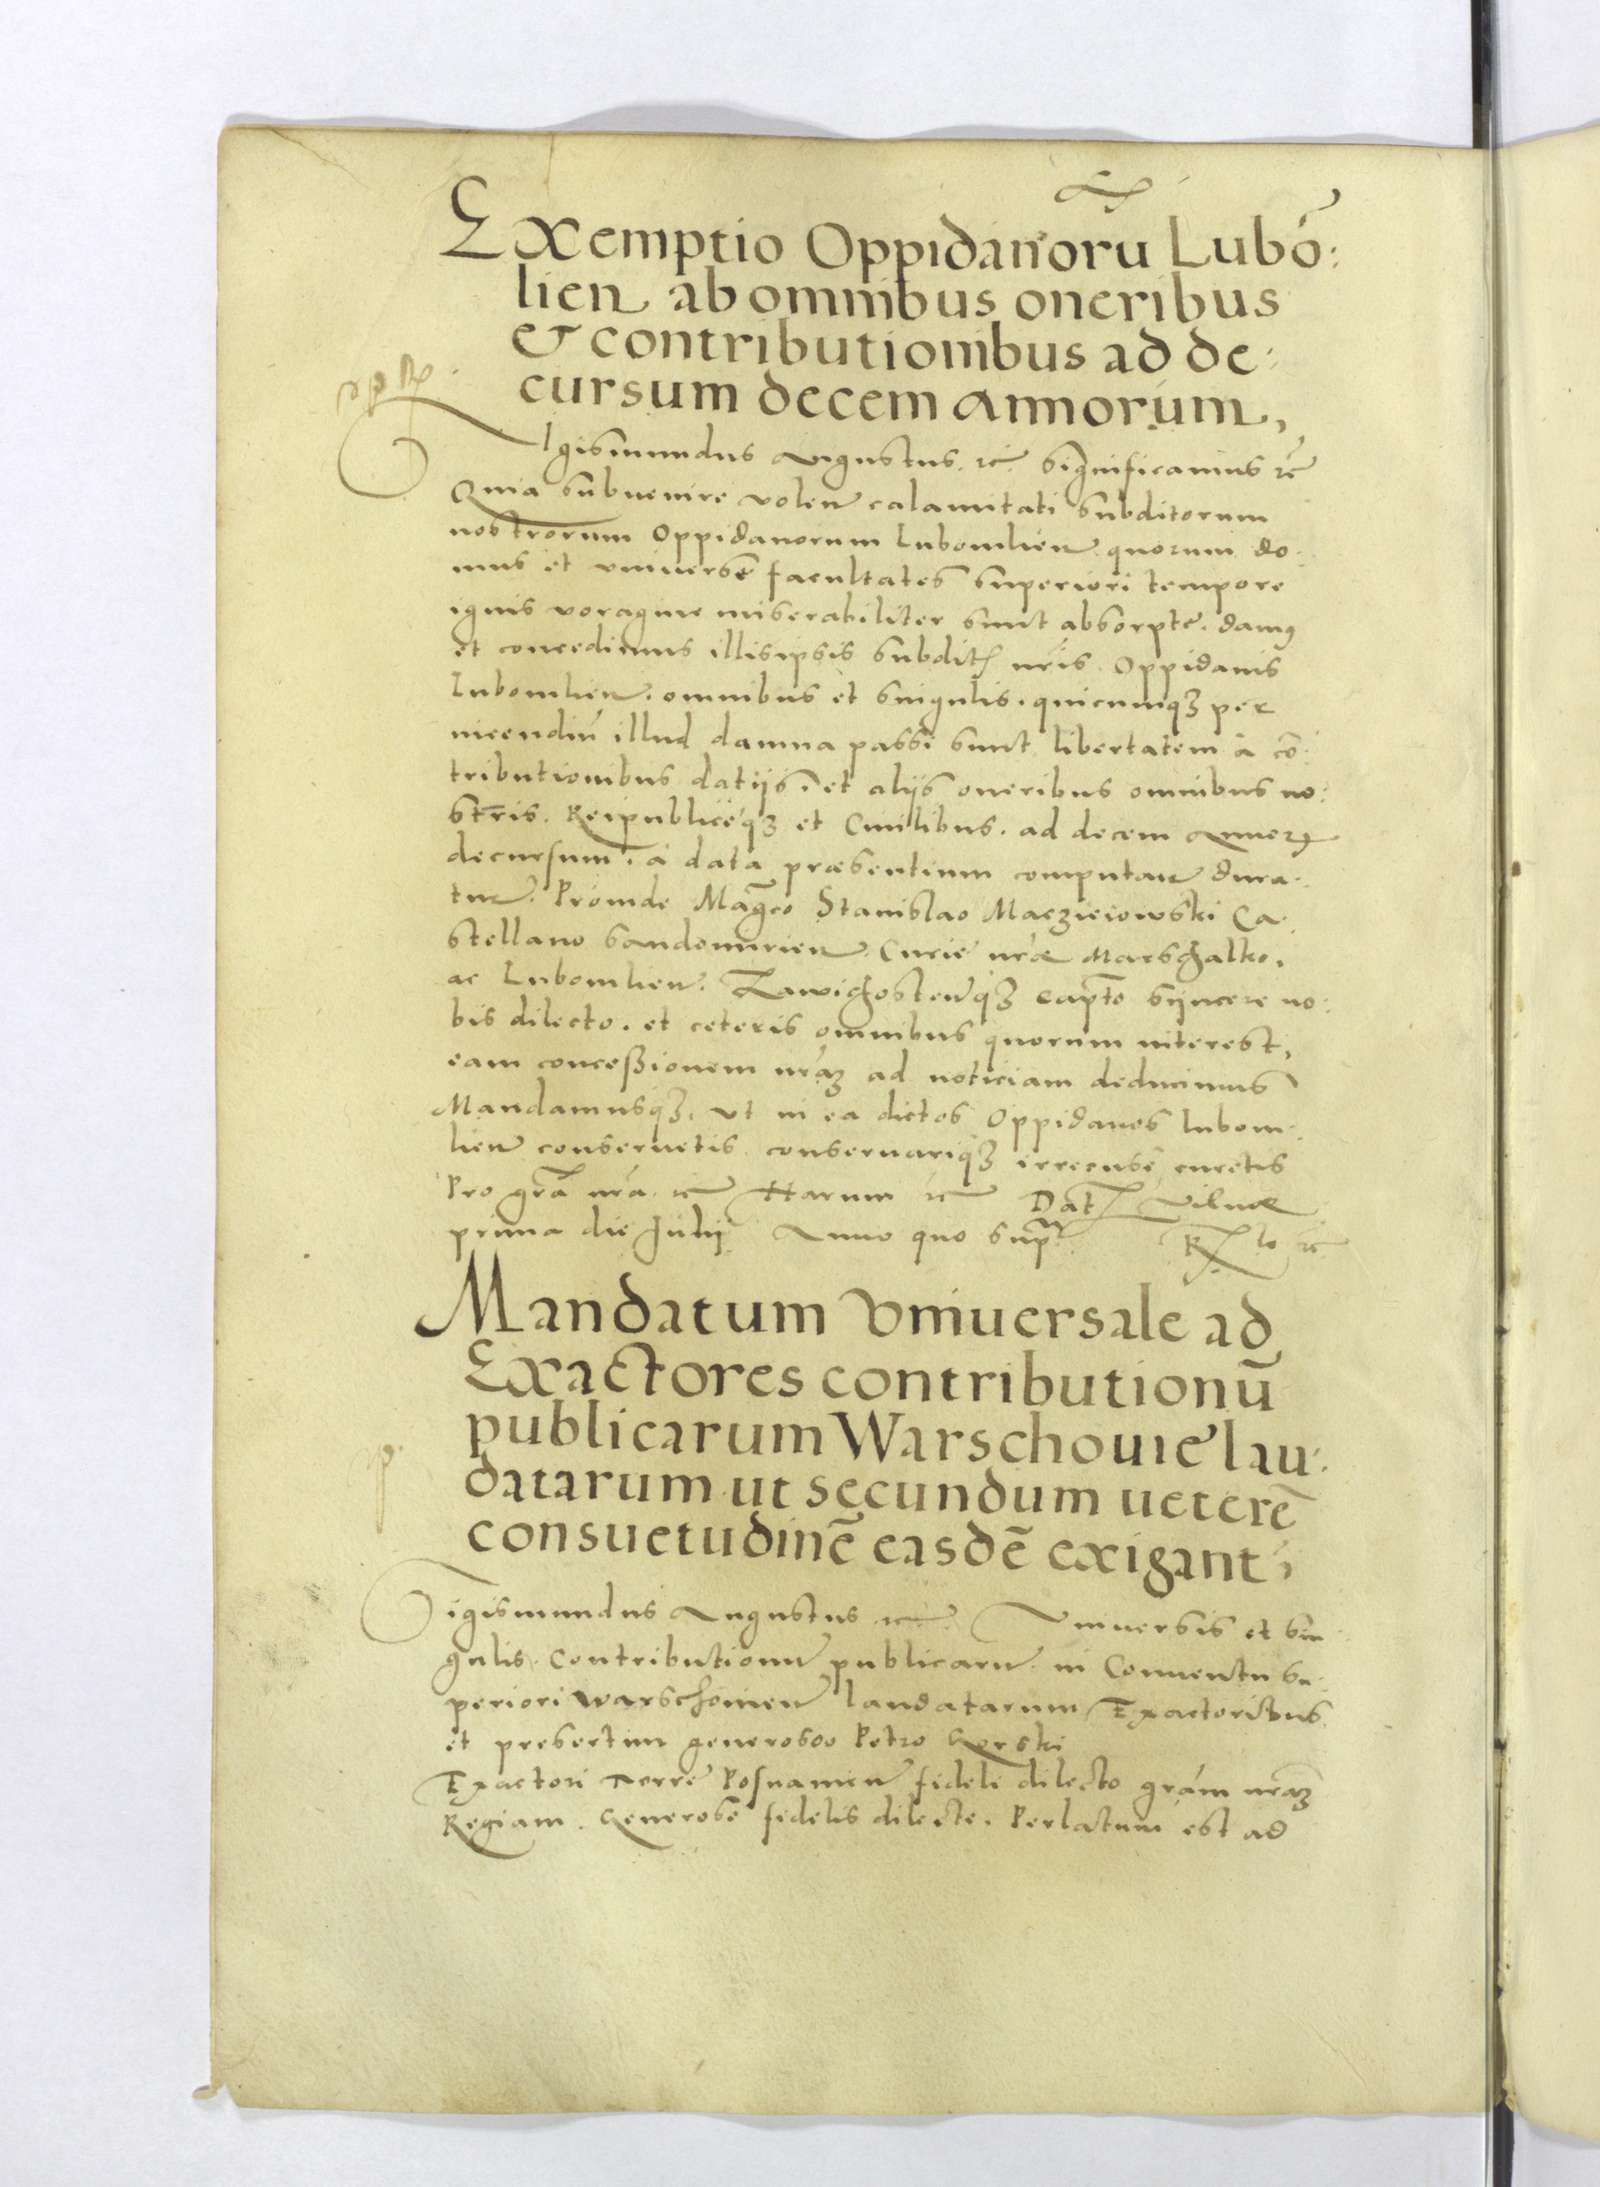 Exemptio Oppidanorū Lubō:
lien ab omnibus oneribus
& contributionibus ad de:
cursum decem annorum,
Igismundus Augustus. &c. Significamus &c
Quia subuenire volen calamitati subditorum
nostrorum Oppidanorum Lubomlien quorum do:
mus et vniversę facultates superiori tempore
ignis voragine miserabiliter sunt absorptę. damus
et concedimus illis ipsis subditis nr̄is. Oppidanis
Lubomlien. omnibus et singulis. quicumq3 per
incendiū illud damna passi sunt libertatem à cō:
tributionibus datijs et alijs oneribus omnibus no:
stris. Reipublicęq3 et Ciuilibus. ad decem Annorꝝ
decursum. à data præsentium computan dura:
tur. Proinde Magco Stanislao Maczieiowski Ca:
stellano Sandomirien. Curię nr̄æ Marschalko,
ac Lubomlien. Zawichostenq3 Capto sijncere no:
bis dilecto. et ceteris omnibus quorum interest,
eam conceßionem nr̄am ad noticiam deducimus
Mandamusq3. vt in ea dictos Oppidanos Lubom:
lien conseruetis conseruariq3 irrecusę curetis
Pro grā nr̄a. &c Harum &c Dat Vilnæ
prima die Julij Anno quo supra
Mandatum Vniuersale ad
Exactores contributionū
publicarum Warschouię lau:
datarum ut secundum ueterē
consuetudinē easdē exigant,
Sigismundus Augustus &c Vniuersis et sin
gulis. Contributionum publicarum in Conuentu su:
periori Warschouien laudatarum Exactoribus.
et presertim generoso Petro Gorski
Exactori Terrę Posnanien fideli dilecto grām nr̄am
Regiam. Generosę fidelis dilecte. Perlatum est ad